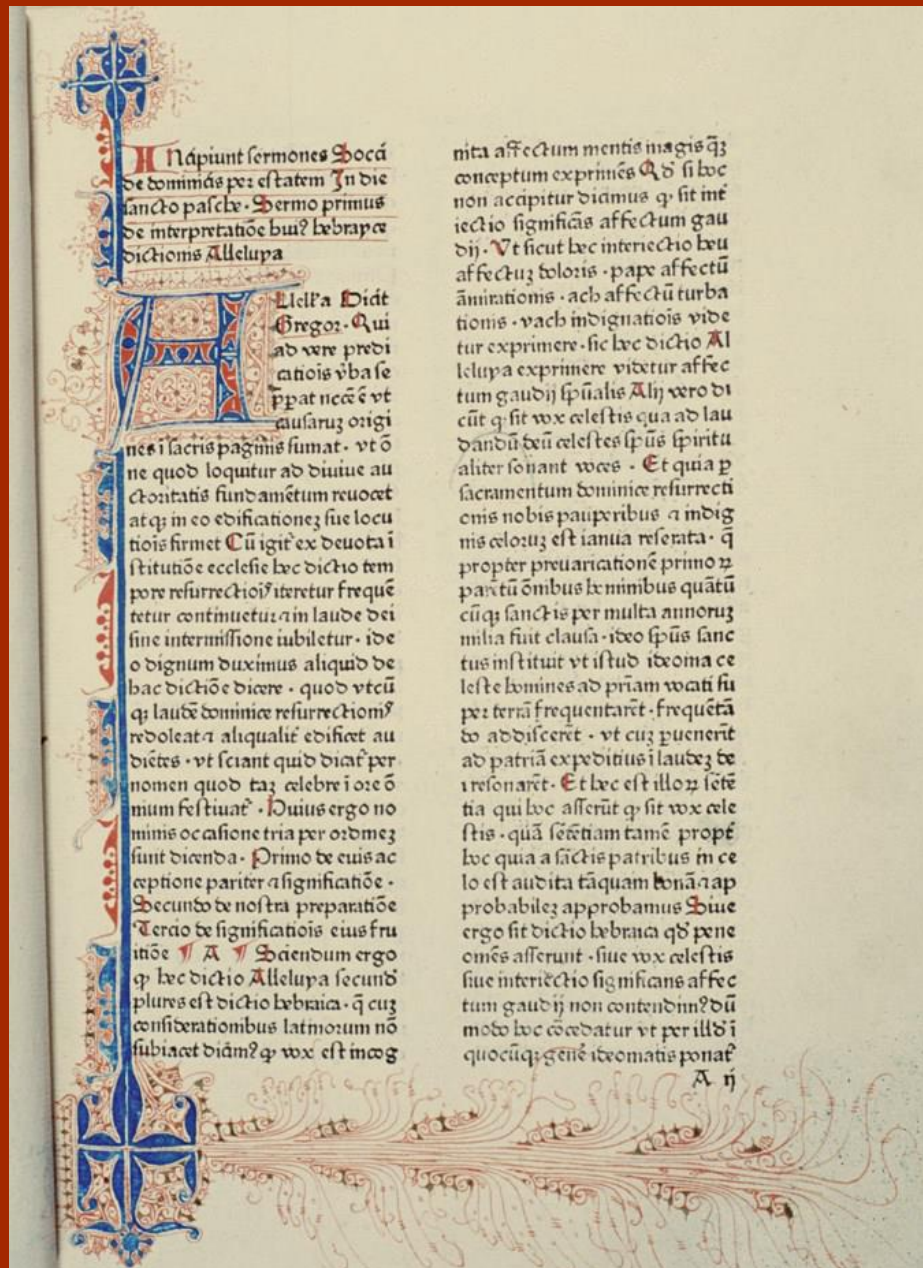 INcipiunt sermones Socci
de dominicis per estatem In die
sancto pasche · Sermo primus
de interpretatiõe huiꝰ hebrayce
dictionis Alleluya
Allel'a Dicit
Gregor · Qui
ad vere predi
catiõis v̾ba se
p̄parat necē ē vt
causaruꝫ origi
nes ī sacris paginis sumat · vt õ
ne quod loquitur ad diuine au
ctoritatis fundamētum reuocet
atqꝫ in eo edificationeꝫ sue locu
tiõis firmet Cū igit᷑ ex deuota ī
stitutiōe ecclesie hec dictio tem
pore resurrectioīꝰ iteretur frequē
tetur continuetur ⁊ in laude dei
sine intermissione iubiletur · ide
o dignum duximus aliquid de
hac dictiōe dicere · quod vtcū
qꝫ laudē dominice resurrectionꝰ
redoleat ⁊ aliqualit᷑ edificet au
diētes · vt sciant quid dicat᷑ per
nomen quod taꝫ celebre ī ore õ
mium festiuat᷑ · Huius ergo no
minis occasione tria per ordineꝫ
sunt dicenda · Primo de euis ac
ceptione pariter ⁊ significatiōe ·
Secundo de nostra preparatiōe
Tercio de significatiōis eius fru
itiōe ¶ A ¶ Sciendum ergo
ꝙ hec dictio Alleluya secund᷑
plures est dictio hebraica · q̄ cuꝫ
considerationibus latinorum nō
subiacet dicimꝰ ꝙ vox est incog
nita affectum mentis magis q̄ꝫ
conceptum exprimēs Qd᷑ si hoc
non accipitur dicimus ꝙ sit int᷑
iectio significās affectum gau
dij · Vt sicut hec interiectio heu
affectuꝫ doloris · pape affectū
āmirationis · ach affectū turba
tionis · vach indignatiōis vide
tur exprimere · sic hec dictio Al
leluya exprimere videtur affec
tum gaudij sp̄ualis Alij vero di
cūt ꝙ sit vox celestis qua ad lau
dandū deū celestes sp̄us spiritu
aliter sonant voces · Et quia ꝑ
sacramentum dominice resurrecti
onis nobis pauperibus ⁊ indig
nis celoruꝫ est ianua reserata · q̄
propter preuaricationē primoꝝ
parētū ōnibus hominibus quātū
cūqꝫ sanctis per multa annoruꝫ
milia fuit clausa · ideo sp̄us sanc
tus instituit vt istud ideoma ce
leste homines ad p̄riam vocati su
per terrā frequentarēt · frequētā
do addiscerēt · vt cuꝫ ꝑuenerīt
ad patriā expeditius ī laudeꝫ de
i resonarēt · Et hec est illoꝝ sētē
tia qui hoc asserūt ꝙ sit vox cele
stis · quā sētētiam tamē propt᷑
hoc quia a sāctis patribus in ce
lo est audita tāquam bonā ⁊ ap
probabileꝫ approbamus Siue
ergo sit dictio hebraica qd᷑ pene
omēs asserunt · siue vox celestis
siue interiectio significans affec
tum gaudij non contendimꝰ dū
modo hoc cōcedatur vt per illd᷑ ī
quocūqꝫ gen̄e ideomatis ponat᷑
A ij